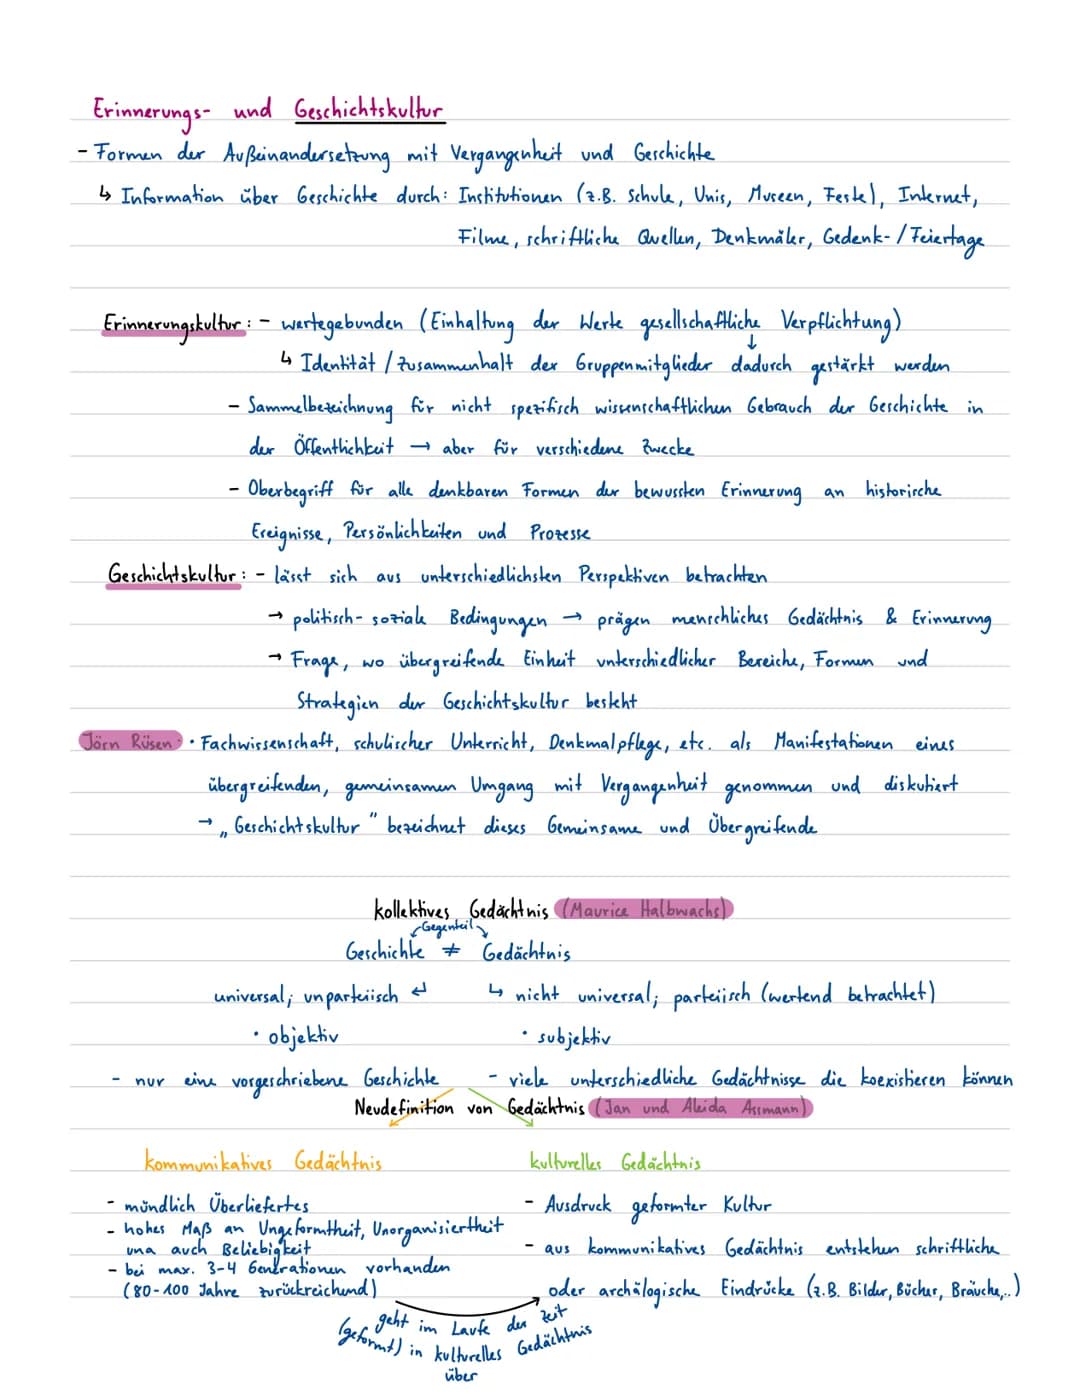 Erinnerungs- und Geschichtskultur
- Formen der Außeinandersetzung mit Vergangenheit und Geschichte
↳ Information über Geschichte durch: Institutionen (z.B. Schule, Unis, Museen, Feste), Internet,
Filme, schriftliche Quellen, Denkmäler, Gedenk-/Feiertage
Erinnerungskultur: - wertegebunden (Einhaltung der Werte gesellschaftliche Verpflichtung)
↓
↳ Identität / Zusammenhalt der Gruppenmitglieder dadurch gestärkt werden
- Sammelbezeichnung für nicht spezifisch wissenschaftlichen Gebrauch der Geschichte in
der Öffentlichkeit → aber für verschiedene Zwecke
- Oberbegriff für alle denkbaren Formen der bewussten Erinnerung an historische
Ereignisse, Persönlichkeiten und Prozesse
Geschichtskultur: - lässt sich aus unterschiedlichsten Perspektiven betrachten
→ politisch-soziale Bedingungen → prägen menschliches Gedächtnis & Erinnerung
→ Frage, wo übergreifende Einheit unterschiedlicher Bereiche, Formen und
Strategien der Geschichtskultur besteht
Jörn Rüsen • Fachwissenschaft, schulischer Unterricht, Denkmalpflege, etc. als Manifestationen eines
übergreifenden, gemeinsamen Umgang mit Vergangenheit genommen und diskutiert
→ „Geschichtskultur" bezeichnet dieses Gemeinsame und Übergreifende
kollektives Gedächtnis (Maurice Halbwachs)
Gegenteil
Geschichte ≠ Gedächtnis
universal; unparteiisch ↵ ↳ nicht universal; parteiisch (wertend betrachtet)
• objektiv • subjektiv
- nur eine vorgeschriebene Geschichte - viele unterschiedliche Gedächtnisse die koexistieren können
Neudefinition von Gedächtnis (Jan und Aleida Assmann)
kommunikatives Gedächtnis kulturelles Gedächtnis
- mündlich Überliefertes
- hohes Maß an Ungeformtheit, Unorganisiertheit
und auch Beliebigkeit
- bei max. 3-4 Generationen vorhanden
(80-100 Jahre zurückreichend)
- Ausdruck geformter Kultur
- aus kommunikatives Gedächtnis entstehen schriftliche
oder archälogische Eindrücke (z.B. Bilder, Bücher, Bräuche,..)
geht im Laufe der Zeit
(geformt) in kulturelles Gedächtnis
über